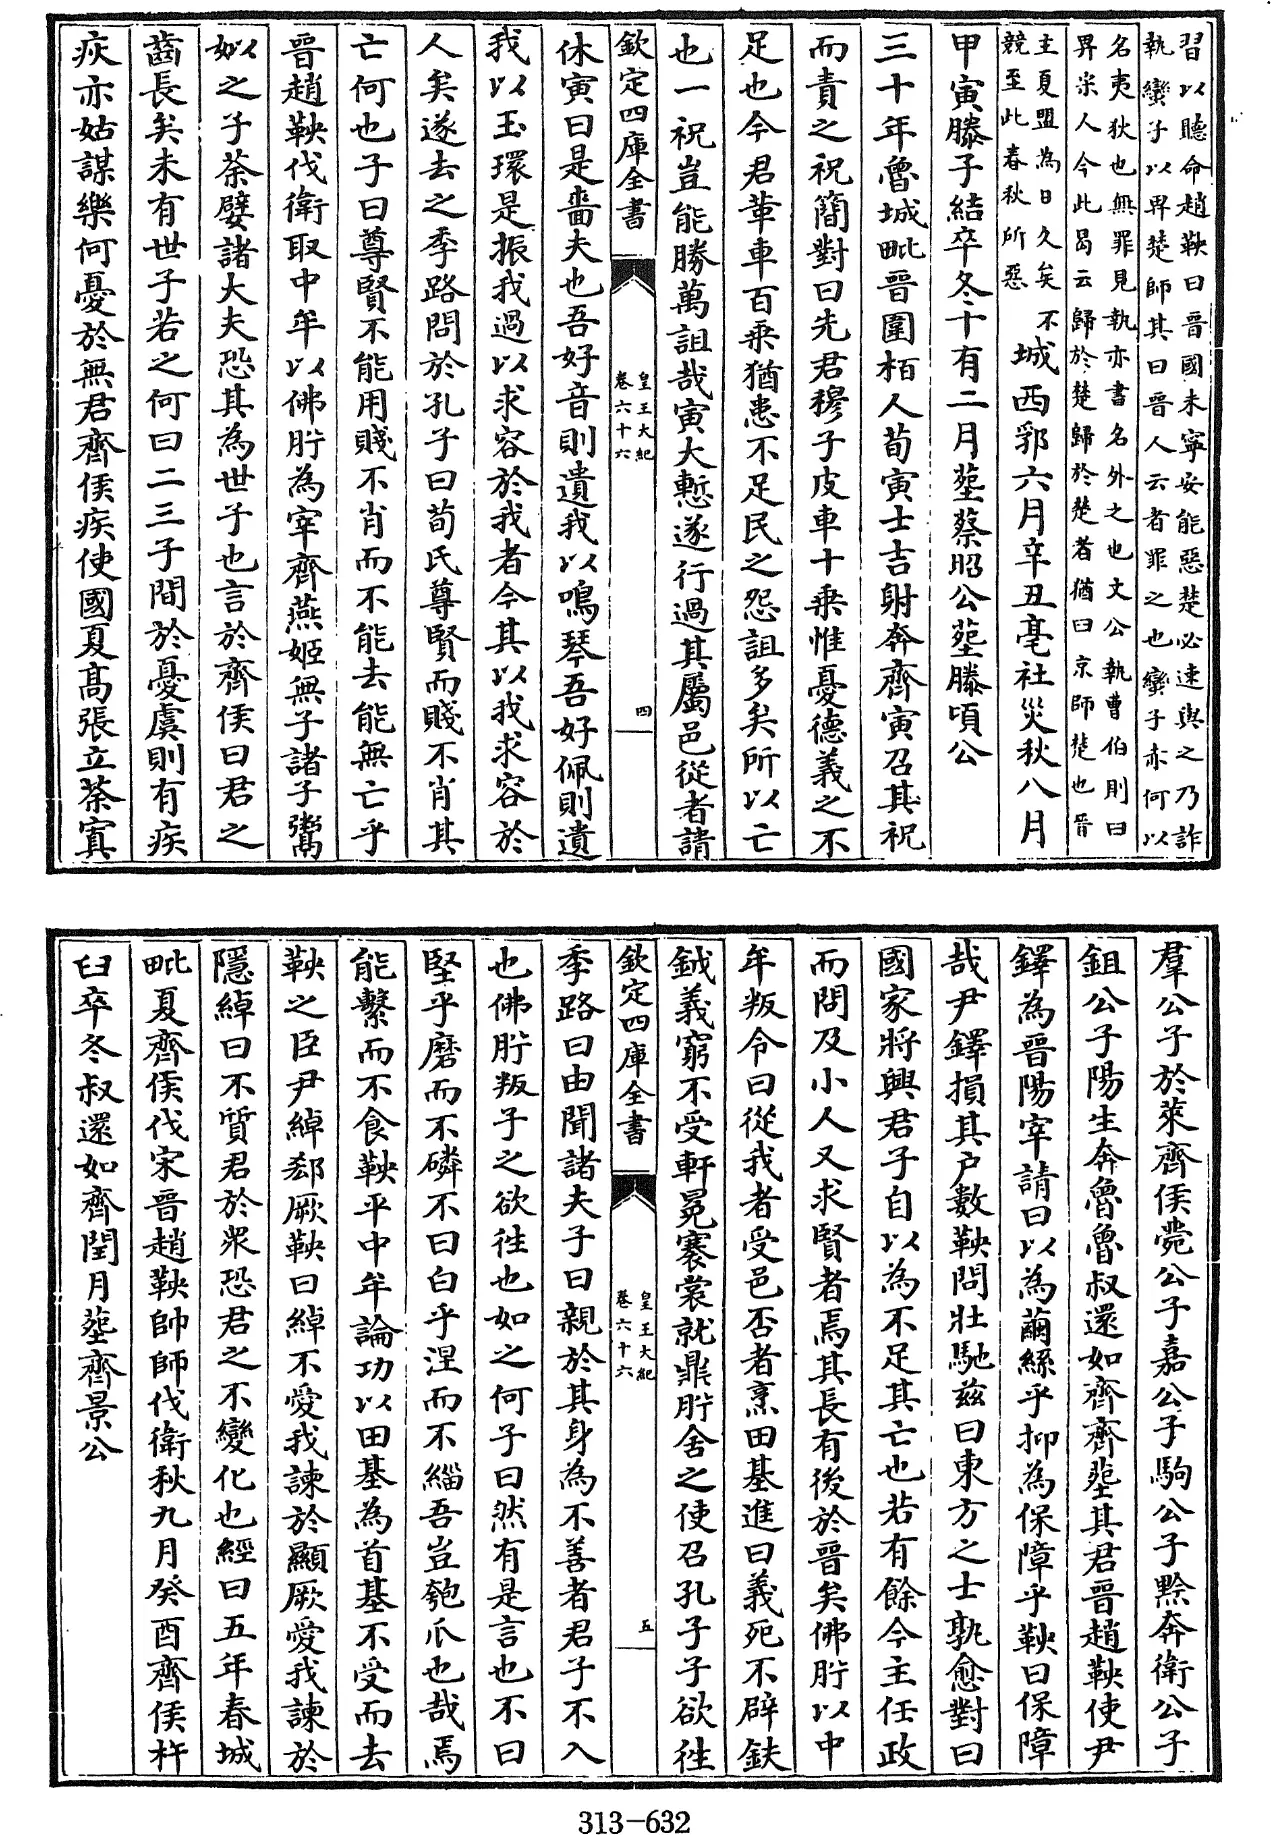 習以聽命趙鞅曰晉國未寧安能惡楚必速與之乃詐
執蠻子以畀楚師其曰晉人云者罪之也蠻子亦何以
名夷狄也無罪見執亦書名外之也文公執曹伯則曰
畀宋人今此曷云歸於楚歸於楚者猶曰京師楚也晉
主夏盟為日久矣不
競至此春秋所惡
城西郛六月辛丑亳社災秋八月
甲寅滕子結卒冬十有二月葬蔡昭公葬滕頃公
三十年魯城毗晉圍栢人荀寅士吉射奔齊寅召其祝
而責之祝簡對曰先君穆子皮車十乘惟憂德義之不
足也今君革車百乘猶患不足民之怨詛多矣所以亡
也一祝豈能勝萬詛哉寅大慙遂行過其屬邑從者請
欽定四庫全書
皇王大紀
卷六十六
四
休寅曰是嗇夫也吾好音則遺我以鳴琴吾好佩則遺
我以玉環是振我過以求容於我者今其以我求容於
人矣遂去之季路問於孔子曰荀氏尊賢而賤不肖其
亡何也子曰尊賢不能用賤不肖而不能去能無亡乎
晉趙鞅伐衛取中牟以佛肸為宰齊燕姬無子諸子鬻
姒之子荼嬖諸大夫恐其為世子也言於齊侯曰君之
齒長矣未有世子若之何曰二三子間於憂虞則有疾
疢亦姑謀樂何憂於無君齊侯疾使國夏高張立荼寘
羣公子於萊齊侯薨公子嘉公子駒公子黔奔衛公子
鉏公子陽生奔魯魯叔還如齊齊葬其君晉趙鞅使尹
鐸為晉陽宰請曰以為繭絲乎抑為保障乎鞅曰保障
哉尹鐸損其戶數鞅問壯馳兹曰東方之士孰愈對曰
國家將興君子自以為不足其亡也若有餘今主任政
而問及小人又求賢者焉其長有後於晉矣佛肸以中
牟叛令曰從我者受邑否者烹田基進曰義死不辟鈇
鉞義窮不受軒冕褰裳就鼎肸舍之使召孔子子欲徃
欽定四庫全書
皇王大紀
卷六十六
五
季路曰由聞諸夫子曰親於其身為不善者君子不入
也佛肸叛子之欲徃也如之何子曰然有是言也不曰
堅乎磨而不磷不曰白乎涅而不緇吾豈匏爪也哉焉
能繫而不食鞅平中牟論功以田基為首基不受而去
鞅之臣尹綽郄厥鞅曰綽不愛我諫於顯厥愛我諫於
隱綽曰不質君於衆恐君之不變化也經曰五年春城
毗夏齊侯伐宋晉趙鞅帥師伐衛秋九月癸酉齊侯杵
臼卒冬叔還如齊閏月葬齊景公
313-632